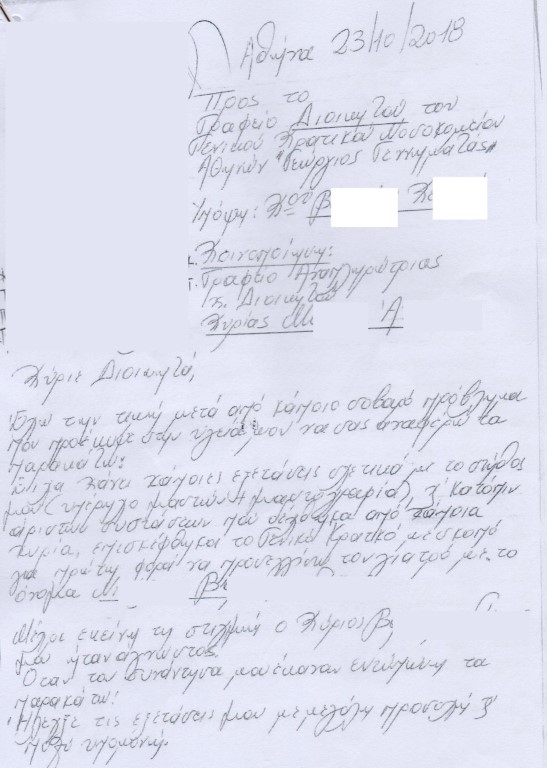 Αθήνα 23/10/2018
Προς το
Γραφείο Διοικητού του
Γενικού Κρατικού Νοσοκομείου
Αθηνών "Γεώργιος Γεννηματάς"
Υπόψη: Κου Β Κ
Κοινοποίηση:
Γραφείο Αναπληρώτριας
κ. Διοικητού
Κυρίας Μ Α.
Κύριε Διοικητά,
Έχω την τιμή μετά από κάποιο σοβαρό πρόβλημα
που προέκυψε στην υγεία μου να σας αναφέρω τα
παρακάτω:
Είχα κάνει κάποιες εξετάσεις σχετικά με το στήθος
μου (υπέρηχο μαστών + μαστογραφία), κ' κατόπιν
αρίστων συστάσεων που δέχθηκα από κάποια
κυρία, επισκέφθηκα το Γενικό Κρατικό με σκοπό
για πρώτη φορά να προσεγγίσω τον γιατρό με το
όνομα Β
Μέχρι εκείνη τη στιγμή ο Κύριος Β
μου ήταν άγνωστος.
Όταν τον συνάντησα μου έκαναν εντύπωση τα
παρακάτω:
Ήλεγξε τις εξετάσεις μου με μεγάλη προσοχή κ'
πολύ υπομονή.